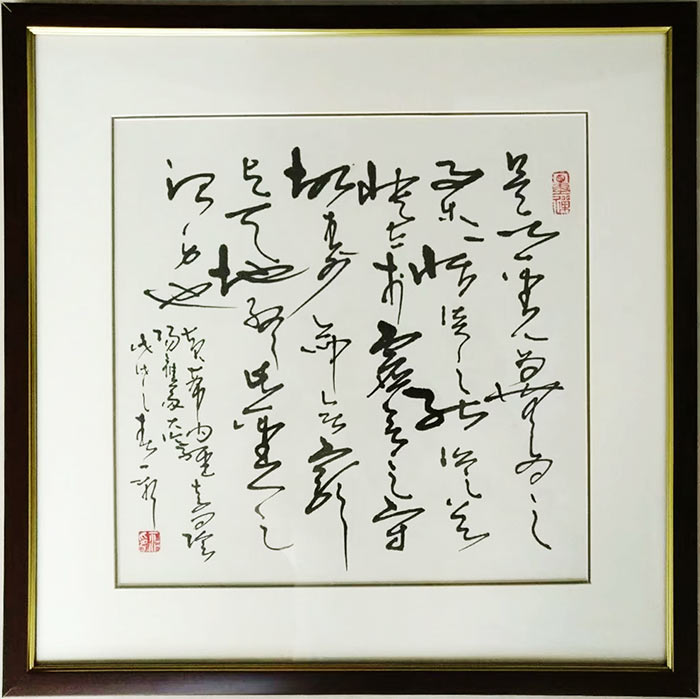 是以聖人為無為之
事樂恬淡之能從欲
快志於虛無之守
故壽命無窮
與天地終此聖人之
治身也
黃帝內經素問陰
陽應象大論
戊戌之春